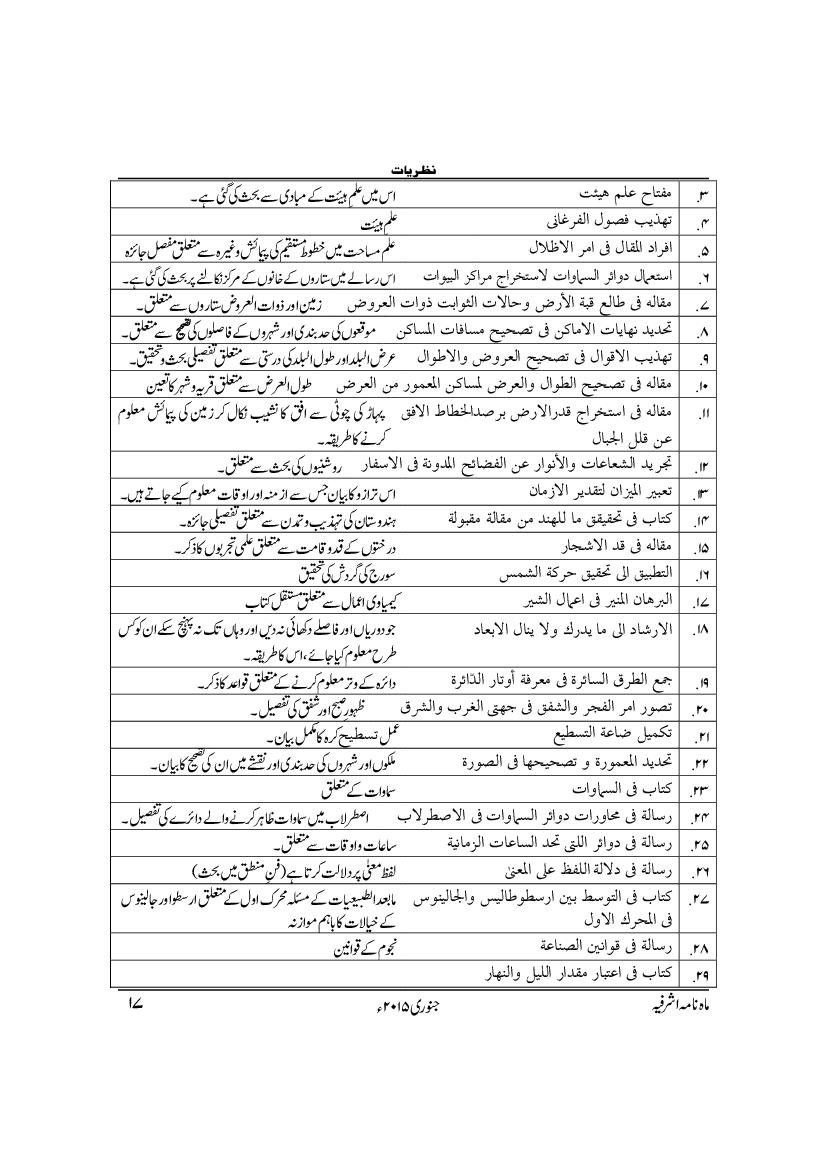 نظریات
۳. مفتاح علم هیئت اس میں علم ہیئت کے مبادی سے بحث کی گئی ہے۔
۴. تهذیب فصول الفرغانی علم ہیئت
۵. افراد المقال فی امر الاظلال علم مساحت میں خطوط مستقیم کی پیمائش وغیرہ سے متعلق مفصل جائزہ
۶. استعمال دوائر السماوات لاستخراج مراکز البیوات اس رسالے میں ستاروں کے خانوں کے مرکز نکالنے پر بحث کی گئی ہے۔
۷. مقاله فی طالع قبة الأرض وحالات الثوابت ذوات العروض زمین اور ذوات العروض ستاروں سے متعلق۔
۸. تحدید نهایات الاماکن فی تصحیح مسافات المساکن موقعوں کی حد بندی اور شہروں کے فاصلوں کی تصحیح سے متعلق۔
۹. تهذیب الاقوال فی تصحیح العروض والاطوال عرض البلد اور طول البلد کی درستی سے متعلق تفصیلی بحث و تحقیق۔
۱۰. مقاله فی تصحیح الطوال والعرض لمساکن المعمور من العرض طول العرض سے متعلق قریہ و شہر کا تعین
۱۱. مقاله فی استخراج قدرالارض برصدالخطاط الافق پہاڑ کی چوٹی سے افق کا نشیب نکال کر زمین کی پیمائش معلوم
عن قلل الجبال کرنے کا طریقہ۔
۱۲. تجرید الشعاعات والأنوار عن الفضائح المدونة فی الاسفار روشنیوں کی بحث سے متعلق۔
۱۳. تعبیر المیزان لتقدیر الازمان اس ترازو کا بیان جس سے ازمنہ اور اوقات معلوم کیے جاتے ہیں۔
۱۴. کتاب فی تحقیقق ما للهند من مقالة مقبولة ہندوستان کی تہذیب و تمدن سے متعلق تفصیلی جائزہ۔
۱۵. مقاله فی قد الاشجار درختوں کے قد و قامت سے متعلق علمی تجربوں کا ذکر۔
۱۶. التطبیق الی تحقیق حرکة الشمس سورج کی گردش کی تحقیق
۱۷. البرهان المنیر فی اعمال الشیر کیمیاوی اعمال سے متعلق مستقل کتاب
۱۸. الارشاد الی ما یدرك ولا ینال الابعاد جو دوریاں اور فاصلے دکھائی نہ دیں اور وہاں تک نہ پہنچ سکے ان کو کس
طرح معلوم کیا جائے، اس کا طریقہ۔
۱۹. جمع الطرق السائرة فی معرفة أوتار الدّائرة دائرہ کے وتر معلوم کرنے کے متعلق قواعد کا ذکر۔
۲۰. تصور امر الفجر والشفق فی جهتی الغرب والشرق ظہور صبح اور شفق کی تفصیل۔
۲۱. تکمیل ضاعة التسطیع عمل تسطیح کرہ کا مکمل بیان۔
۲۲. تحدید المعمورة و تصحیحها فی الصورة ملکوں اور شہروں کی حد بندی اور نقشے میں ان کی تصحیح کا بیان۔
۲۳. کتاب فی السماوات سماوات کے متعلق
۲۴. رسالة فی محاورات دوائر السماوات فی الاصطرلاب اصطرلاب میں سماوات ظاہر کرنے والے دائرے کی تفصیل۔
۲۵. رسالة فی دوائر اللتی تحد الساعات الزمانیة ساعات و اوقات سے متعلق۔
۲۶. رسالة فی دلالة اللفظ علی المعنیٰ لفظ معنیٰ پر دلالت کرتا ہے (فن منطق میں بحث)
۲۷. کتاب فی التوسط بین ارسطوطالیس والجالینوس مابعد الطبیعیات کے مسئلہ محرک اول کے متعلق ارسطو اور جالینوس
فی المحرك الاول کے خیالات کا باہم موازنہ
۲۸. رسالة فی قوانین الصناعة نجوم کے قوانین
۲۹. کتاب فی اعتبار مقدار اللیل والنهار
ماہ نامہ اشرفیہ جنوری ۲۰۱۵ء ۱۷